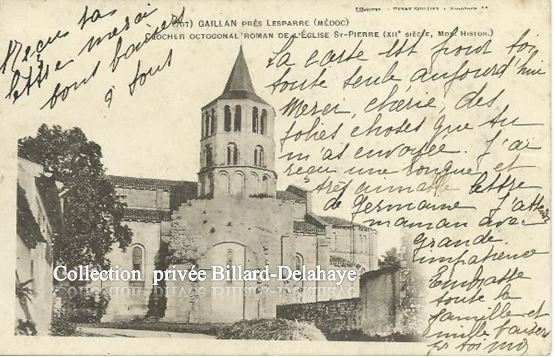 GAILLAN PRÈS LESPARRE (MÉDOC)
CLOCHER OCTOGONAL ROMAN DE L'ÉGLISE ST-PIERRE (XIIe SIÈCLE, MON. HISTOR.)
Reçu ta
lettre merci
bons baisers
à tous
La carte est pour toi
toute seule aujourd'hui
Merci, chérie, des
jolies choses que tu
m'as envoyée. J'ai
reçu une longue et
très aimable lettre
de Germaine J'attends
maman avec
grande
impatience
Embrasse
toute la
famille et
mille baisers
toi
Collection privée Billard-Delahaye